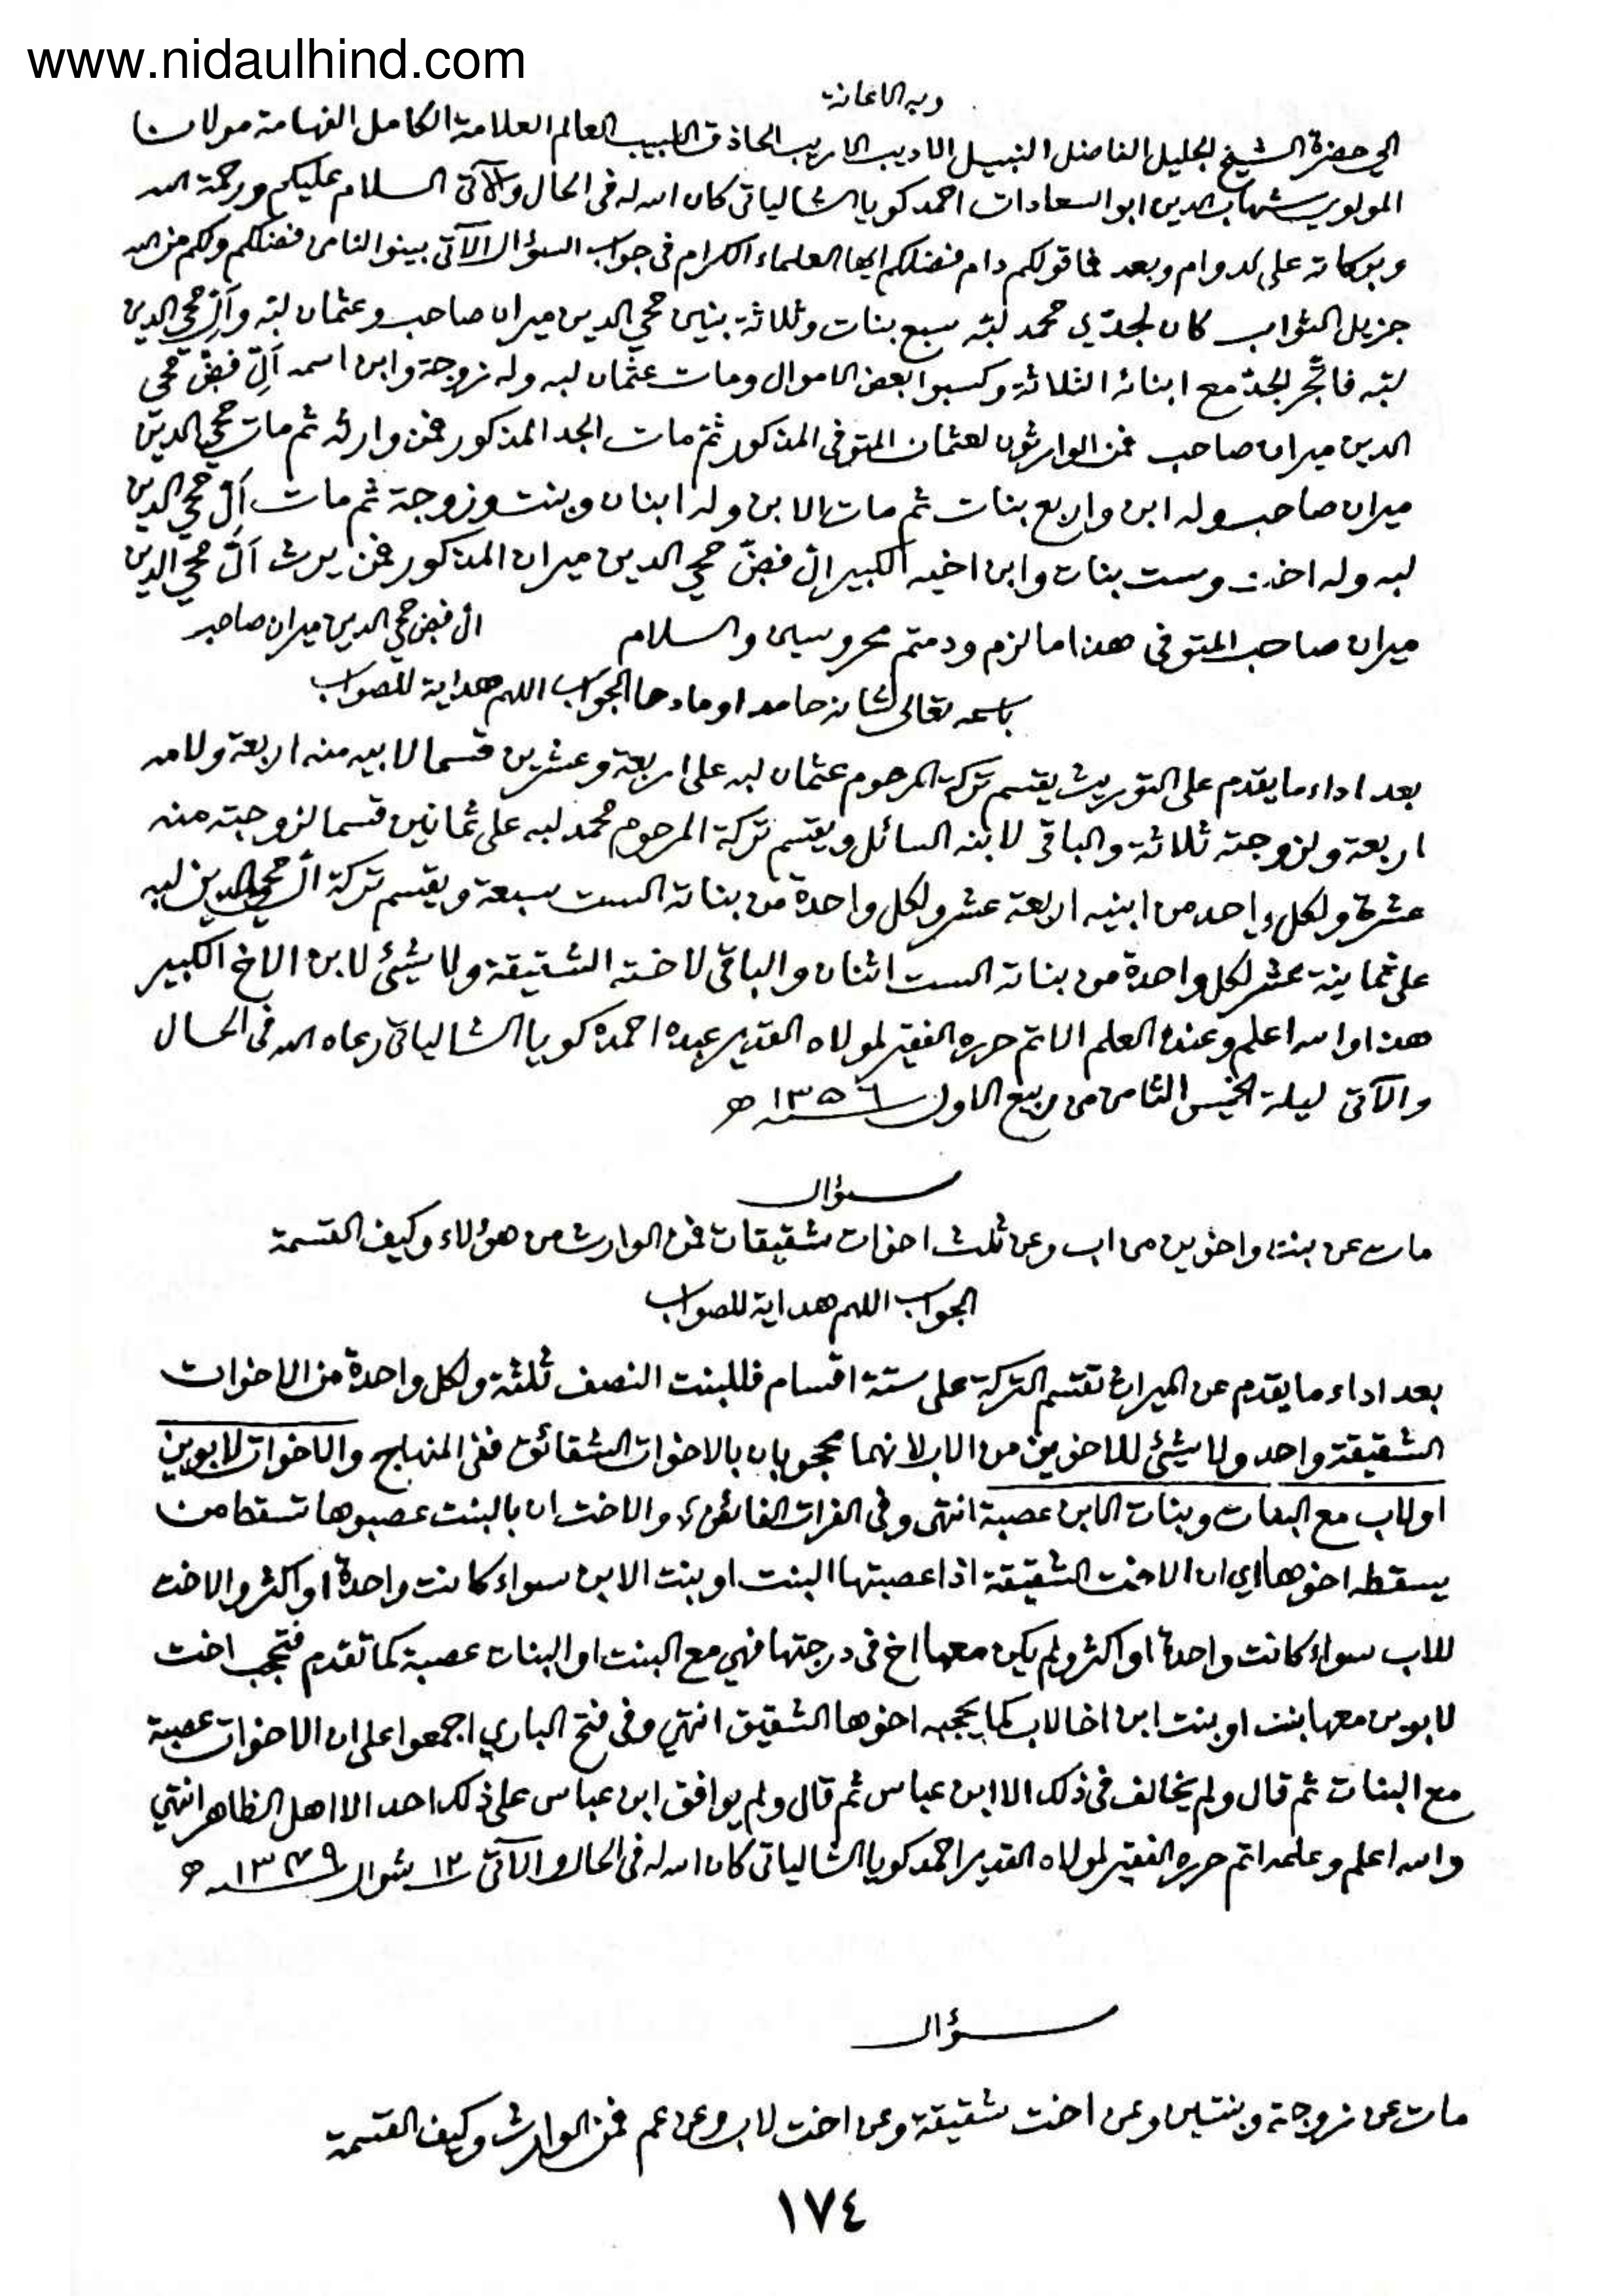 www.nidaulhind.com
وبه الاعانة
الى حضرة الشيخ الجليل الفاضل النبيل الاديب الاريب الحاذق اللبيب العالم العلامة الكامل الفهامة مولانا
المولوي شهاب الدين ابو السعادات احمد كويا الشالياتي كان الله له في الحال والآتي السلام عليكم ورحمة الله
وبركاته على الدوام وبعد فما قولكم دام فضلكم ايها العلماء الكرام في جواب السؤال الآتي بينوا لنا من فضلكم ولكم من الله
جزيل الثواب كان لجدّي محمد لبّه سبع بنات وثلاثة بنين محي الدين ميران صاحب وعثمان لبّه وآلّ محي الدين
لبّه فاتّجر الجدّ مع ابنائه الثلاثة وكسبوا بعض الاموال ومات عثمان لبه وله زوجة وابن اسمه آلّ فضّ محي
الدين ميران صاحب فمن الوارثون لعثمان المتوفى المذكور ثمّ مات الجد المذكور فمن وارثه ثم مات محي الدين
ميران صاحب وله ابن واربع بنات ثم مات الابن وله ابنان وبنت وزوجة ثم مات آلّ محي الدين
لبه وله اخت وست بنات وابن اخيه الكبير الّ فضّ محي الدين ميران المذكور فمن يرث آلّ محي الدين
ميران صاحب المتوفى هذا ما لزم ودمتم محروسين والسلام الّ فضّ محي الدين ميران صاحب
باسمه تعالى شانه حامدا ومادحا الجواب اللهم هداية للصواب
بعد اداء ما يقدم على التوريث يقتسم تركة المرحوم عثمان لبه على اربعة وعشرين قسما لابيه منه اربعة ولامه
اربعة ولزوجته ثلاثة والباقي لابنه السائل ويقتسم تركة المرحوم محمد لبه على ثمانين قسما لزوجته منه
عشرة ولكل واحد من ابنيه اربعة عشر ولكل واحدة من بناته الست سبعة ويقسم تركة الّ محي الدين لبه
على ثمانية عشر لكل واحدة من بناته الست اثنان والباقي لاخته الشقيقة ولا شيئ لابن الاخ الكبير
هذا والله اعلم وعنده العلم الاتم حرره الفقير لمولاه القدير عبده احمد كويا الشالياتي رعاه الله في الحال
والآتي ليلة الخميس الثامن من ربيع الاول سنة ١٣٥٦ ه
سؤال
مات عن بنت واخوين من اب وعن ثلث اخوات شقيقات فمن الوارث من هؤلاء وكيف القسمة
الجواب اللهم هداية للصواب
بعد اداء ما يقدم عن الميراث تقتسم التركة على ستة اقسام فللبنت النصف ثلثة ولكل واحدة من الاخوات
الشقيقة واحد ولا شيئ للاخوين من الاب لانهما محجوبان بالاخوات الشقائق ففي المنهاج والاخوات لابوين
او لاب مع البنات وبنات الابن عصبة انتهى وفي الفرات الفائض والاختان بالبنت عصبوها تسقط من
يسقطه اخوها اي ان الاخت الشقيقة اذا عصبتها البنت او بنت الابن سواء كانت واحدة او اكثر والاخت
للاب سواء كانت واحدة او اكثر ولم يكن معها اخ في درجتها فهي مع البنت او البنات عصبة كما تقدم فتحجب اخت
لابوين معها بنت او بنت ابن اخا لاب كما يحجبه اخوها الشقيق انتهى وفي فتح الباري اجمعوا على ان الاخوات عصبة
مع البنات ثم قال ولم يخالف في ذلك الا ابن عباس ثم قال ولم يوافق ابن عباس على ذلك احد الا اهل الظاهر انتهى
والله اعلم وعلمه اتم حرره الفقير لمولاه القدير احمد كويا الشالياتي كان الله له في الحال والآتي ١٢ شوال سنة ١٣٤٩ ه
سؤال
مات عن زوجة وبنتين وعن اخت شقيقة وعن اخت لاب وعن عم فمن الوارث وكيف القسمة
١٧٤